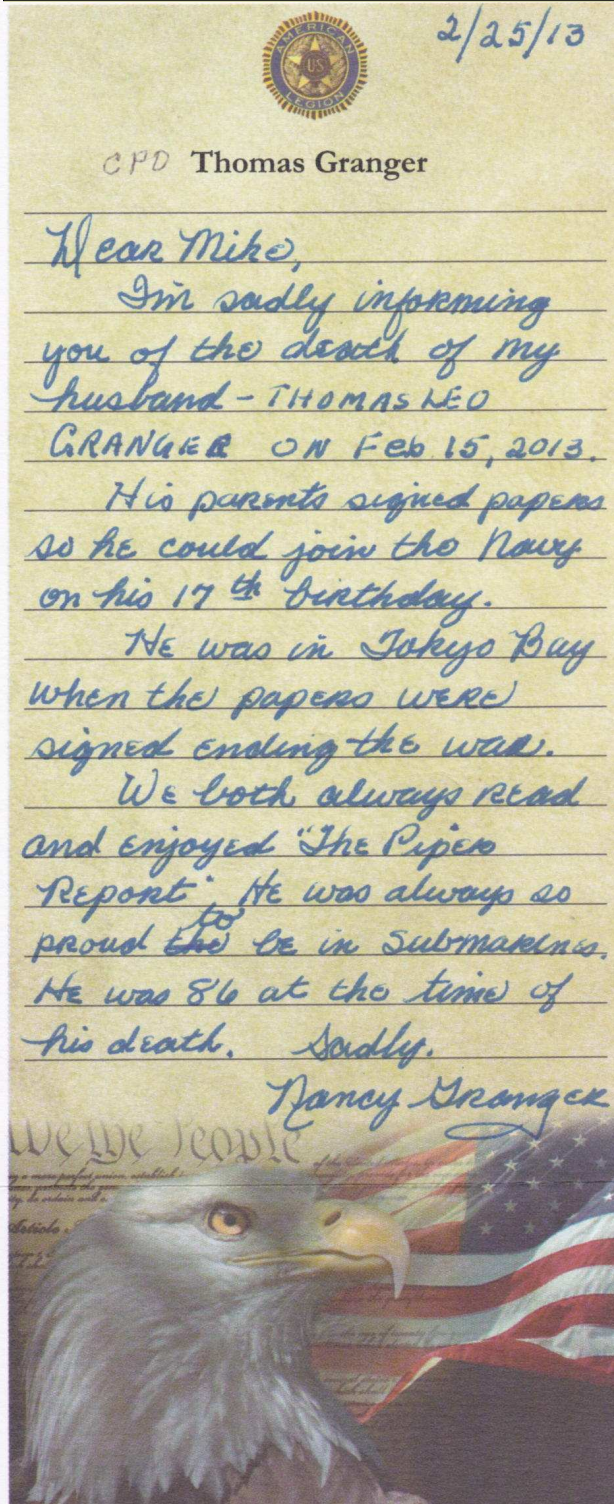 2/25/13
AMERICAN
US
LEGION
CPD Thomas Granger
Dear Mike,
I'm sadly informing
you of the death of my
husband - THOMAS LEO
GRANGER ON Feb 15, 2013.
His parents signed papers
so he could join the Navy
on his 17th birthday.
He was in Tokyo Bay
when the papers were
signed ending the war.
We both always read
and enjoyed "The Pipers
Report". He was always so
to
proud the be in Submarines.
He was 86 at the time of
his death. Sadly.
Nancy Granger
We the People
Article